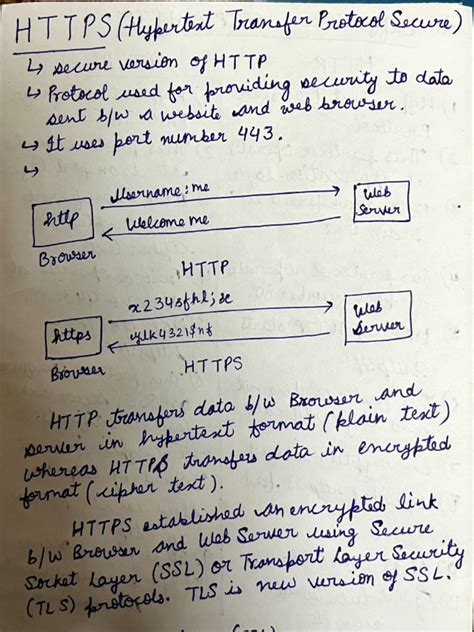 HTTPS (Hypertext Transfer Protocol Secure)
↳ secure version of HTTP
↳ Protocol used for providing security to data
sent b/w a website and web browser.
↳ It uses port number 443.
↳
http
Username: me
Welcome me
Web
Server
Browser
HTTP
https
x234sfhl;se
Web
Server
Browser
HTTPS
HTTP transfers data b/w Browser and
server in hypertext format (plain text)
whereas HTTPS transfers data in encrypted
format (cipher text).
HTTPS established an encrypted link
b/w Browser and Web Server using Secure
Socket Layer (SSL) or Transport Layer Security
(TLS) protocols. TLS is new version of SSL.